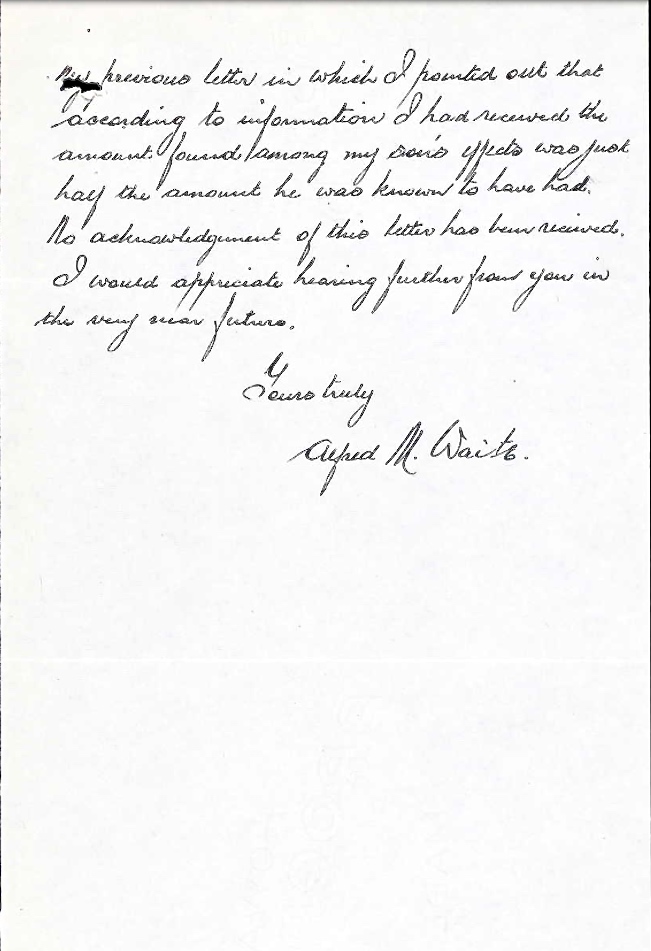 my previous letter in which I pointed out that
according to information I had received the
amount found among my son's effects was just
half the amount he was known to have had.
No acknowledgement of this letter has been received.
I would appreciate hearing further from you in
the very near future.
Yours truly
Alfred M. Waite.